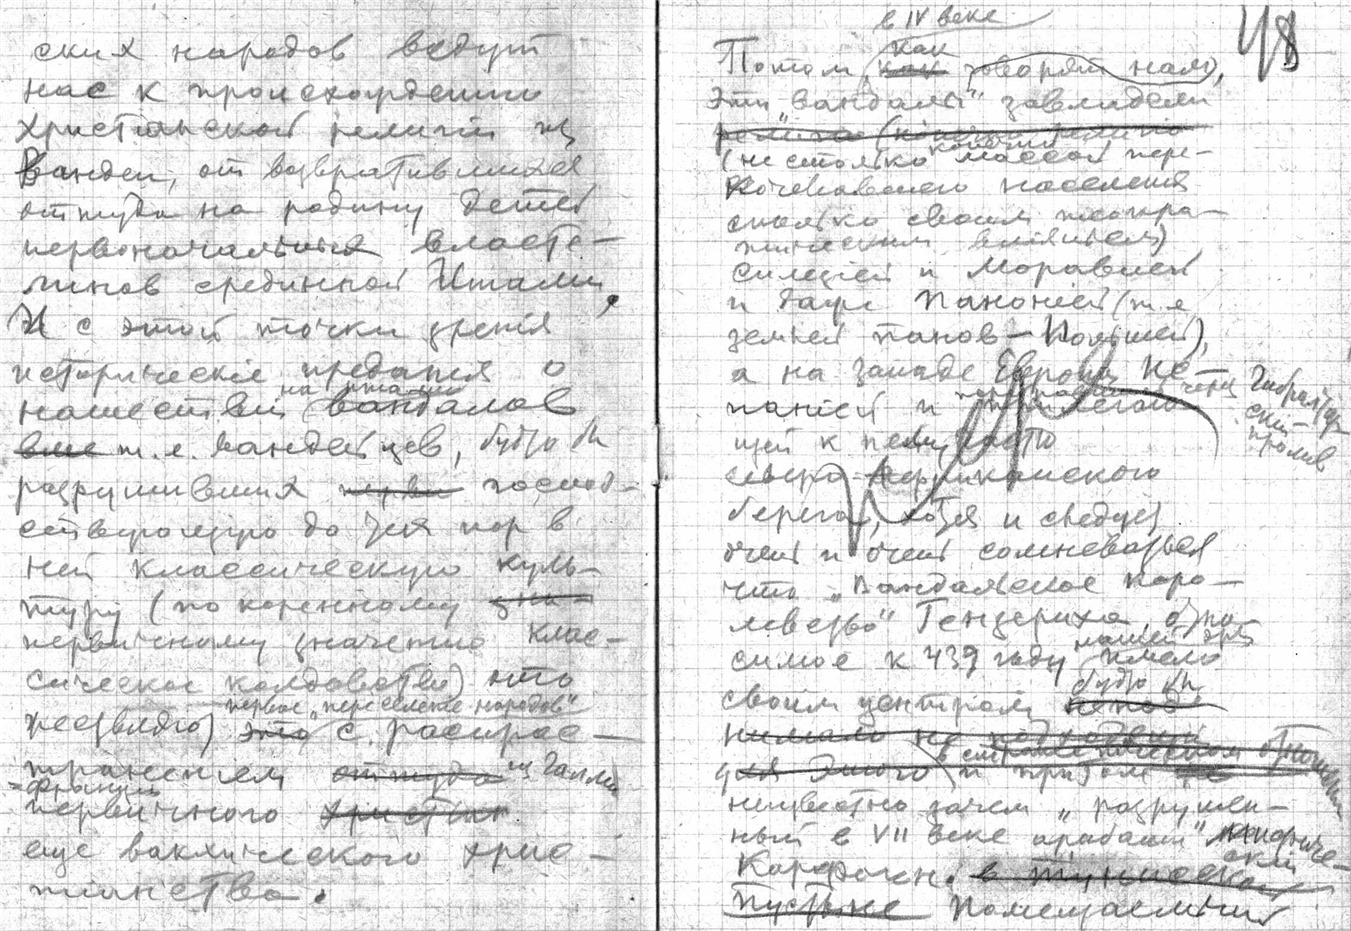 ских народов ведут
нас к происхождению
христианской религии из
Вандеи, от возвратившихся
оттуда на родину детей
первоначальных власте-
линов срединной Италии.
И с этой точки зрения
исторические предания о
на Италию
нашествии вандалов
вме т.е. вандейцев, будто бы
разрушивших господ-
ствующую до тех пор в
ней классическую куль-
туру (по коренному зна-
первичному значению клас-
сическое колдовство) что
первое "переселение народов"
тождественно это с распрос-
транением оттуда из Галлии
-Франции
первичного христиан
еще вакхического хрис-
тианства.
48
в IV веке
как
Потом, как говорят нам,
эти "вандалы" завладели
конечно
(не столько массой пере-
кочевавшего населения
сколько своим теокра-
тическим влиянием)
Силезией и Моравией
и даже Панонией (т.е.
землей панов - Польшей),
а на западе Европы Ис-
через Гибралтар
ский
пролив
панией и
щей к нему частью
северо-Африканского
берега, хотя и следует
очень и очень сомневаться
что "Вандальское коро-
левство" Гензериха, отно
нашей эры
симое к 439 году имело
будто бы
своим центром
для этого и притом
неизвестно зачем "разрушен-
ный в VII веке арабами" мифиче-
ский
Карфаген. в тунисской
пустыне помещаемый